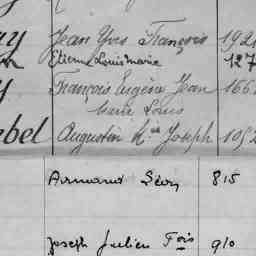 Jean Yves François 192
Etienne Louis Marie 127
François Eugène Jean 166
Marie Louis
ebel Augustin Mie Joseph 105
Armand Léon 815
Joseph Julien Fois 910